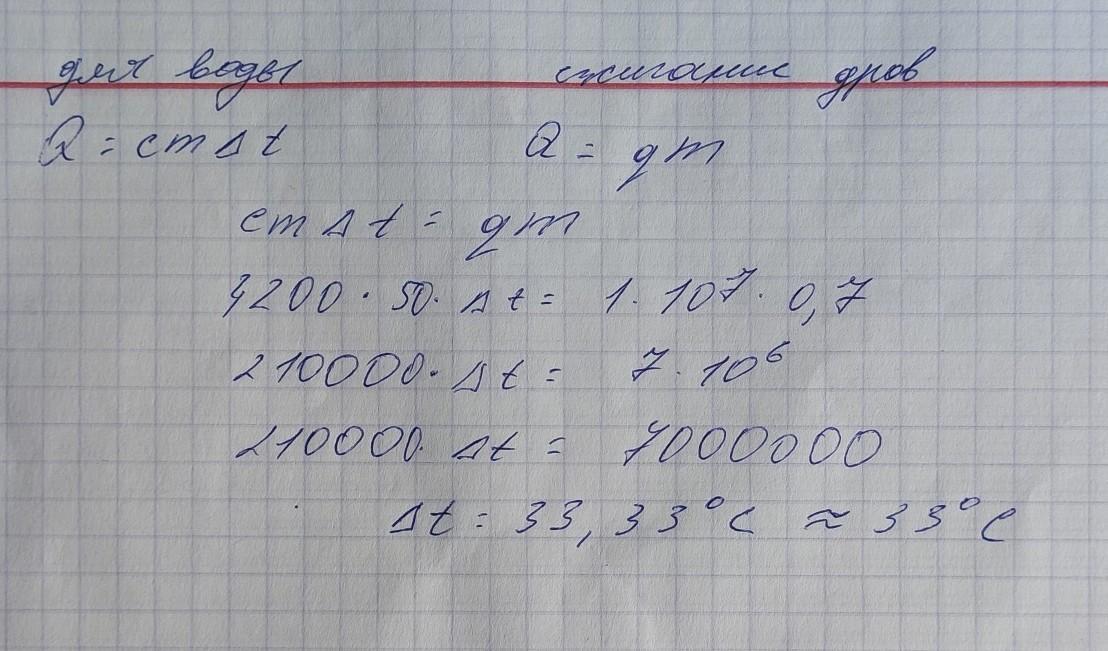 для воды сжигание дров
Q = cm Δt Q = qm
cm Δt = qm
4200 · 50 · Δt = 1 · 10⁷ · 0,7
210000 · Δt = 7 · 10⁶
210000 · Δt = 7000000
Δt = 33,33°C ≈ 33°C